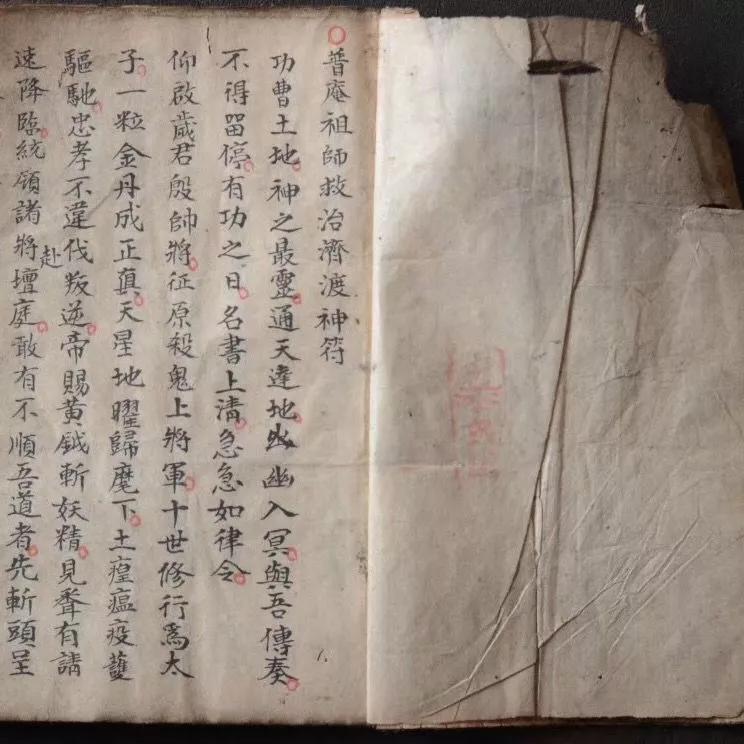 普庵祖師救治濟渡神符
功曹土地神之最靈通天達地出幽入冥與吾傳奏
不得留停有功之日名書上清急急如律令
仰啟歲君殷帥將征原殺鬼上將軍十世修行為太
子一粒金丹成正真天星地曜歸麾下土瘟疫
驅馳忠孝不違伐叛逆帝賜黃鉞斬妖精見聲有請
速降臨統領諸將赴壇庭敢有不順吾道者先斬頭呈